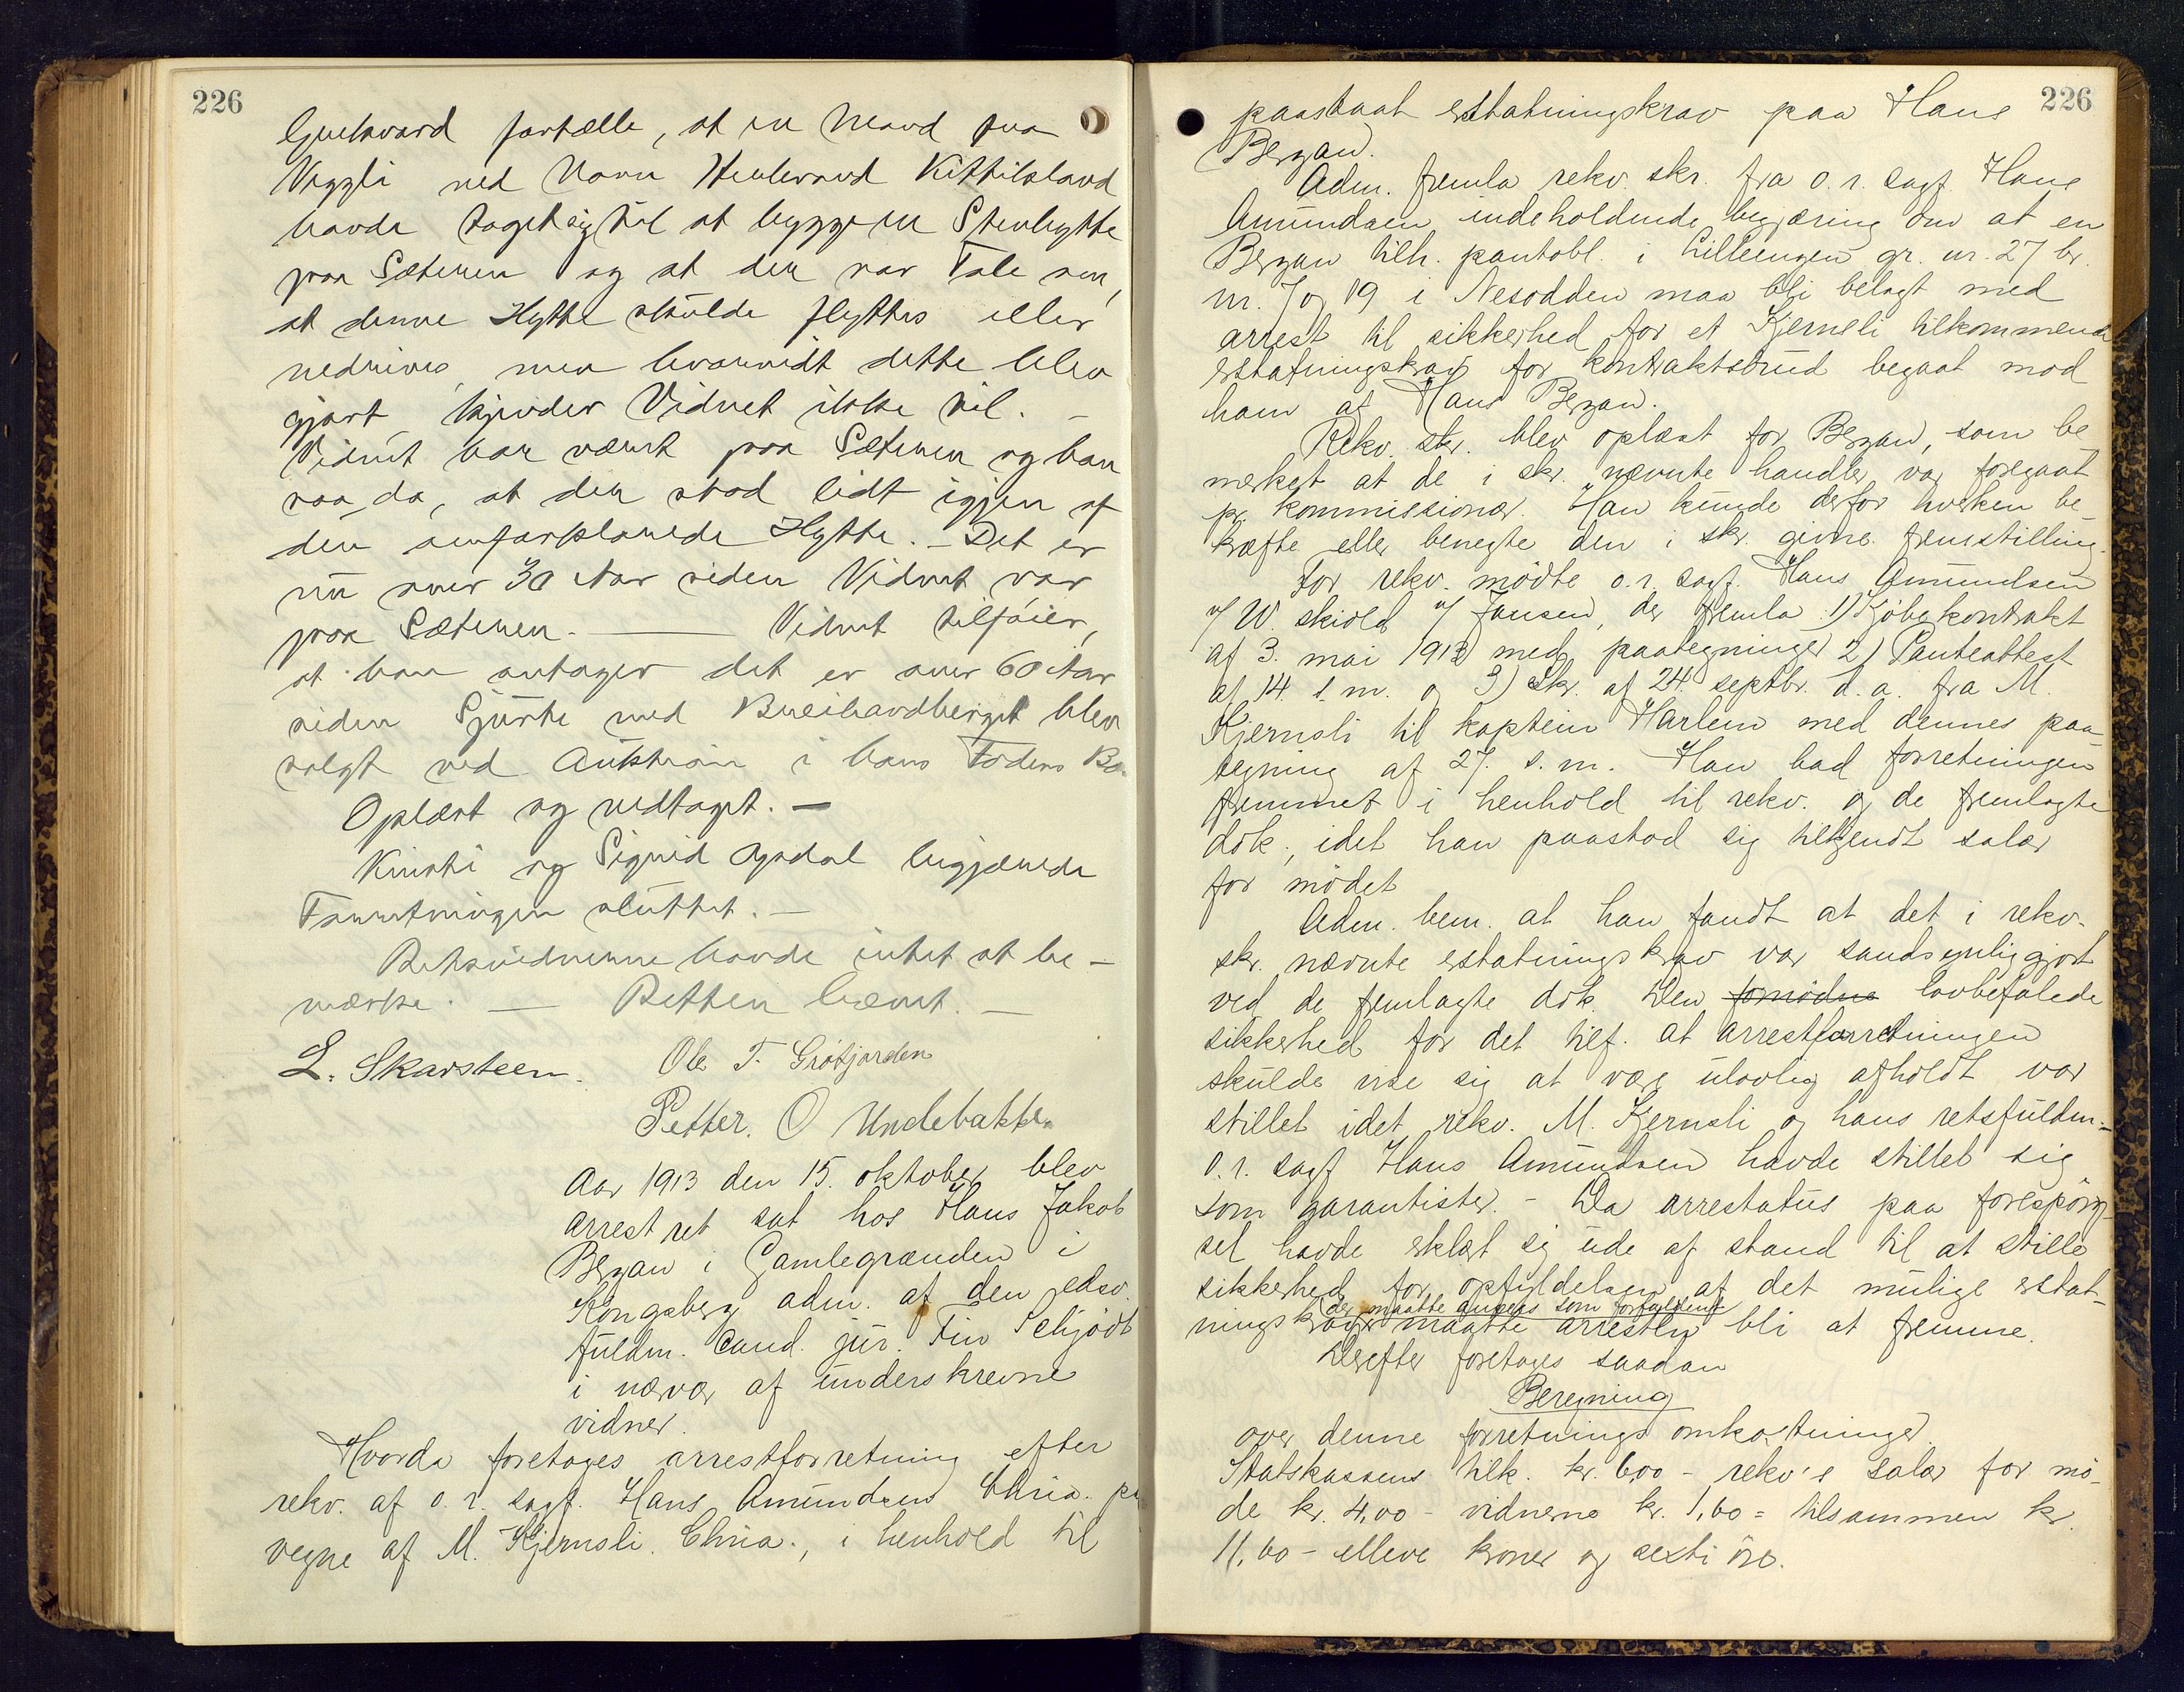 226
fortælle, at en Mand paa
Veggli ved Navn Kittilsland
havde taget sig til at bygge en Stenhytte
paa Sæteren og at der var Tale om,
at denne Hytte skulde flyttes eller
nedrives, men hvorvidt dette blev
gjort kjender Vidnet ikke til. –
Vidnet har været paa Sæteren og han
saa da, at der stod lidt igjen af
den omforklarede Hytte. – Det er
nu over 30 Aar siden Vidnet var
paa Sæteren. — Vidnet tilføier,
at han antager det er over 60 Aar
siden Sjurte med blev
solgt ved Auktion i hans Faders Bo.
Oplæst og vedtaget. –
Kirsti og Sigrid Opdal begjærede
Forretningen sluttet. –
Retsvidnerne havde intet at be-
mærke. — Retten hævet. –
L. Skarsteen. Ole T. Grøtjorden
Petter. O Undebakke
Aar 1913 den 15. oktober blev
arrestret sat hos Hans Jakob
Bergan i Gamlegrænden i
Kongsberg adm. af den edsv.
fuldm. cand. jur. Fin Schjødt
i nærvær af underskrevne
vidner.
Hvorda foretoges arrestforretning efter
rekv. af o. r. sagf. Hans Amundsen Chria. pr
vegne af M. Kjernsli, Chria., i henhold til
226
paastaat erstatningskrav paa Hans
Bergan.
Adm. fremla rekv. skr. fra o. r. sagf. Hans
Amundsen indeholdende begjæring om at en
Bergan tilh. pantobl. i Lilleengen gr. nr. 27 br.
nr. 7 og 19 i Nesodden maa bli belagt med
arrest til sikkerhed for et Kjernsli tilkommende
erstatningskrav for kontraktsbrud begaat mod
ham af Hans Bergan.
Rekv. skr. blev oplæst for Bergan, som be-
merket at de i skr. nævnte handler var foregaat
pr. kommissionær. Han kunde derfor hverken be-
kræfte eller benegte den i skr. givne fremstilling.
For rekv. mødte o. r. sagf. Hans Amundsen
v/ W. skiold v/ Jansen, der fremla 1) Kjøbekontrakt
af 3. mai 1913 med paategninger 2) Panteattest
af 14. s. m. og 3) Skr. af 24. septbr. d. a. fra M.
Kjernsli til kaptein Harlem med dennes paa-
tegning af 27. s. m. Han bad forretningen
fremmet i henhold til rekv. og de fremlagte
dok., idet han paastod sig tilkjendt salær
for mødet
Adm. bem. at han fandt at det i rekv.
skr. nævnte erstatningskrav var sandsynliggjort
ved de fremlagte dok. Den fornødne lovbefalede
sikkerhed for det tilf. at arrestforretningen
skulde vise sig at være ulovlig afholdt var
stillet idet rekv. M. Kjernsli og hans retsfuldm.
o. r. sagf Hans Amundsen havde stillet sig
som garantister. – Da arrestatus paa forespørg-
sel havde erklæt sig ude af stand til at stille
sikkerhed for opfyldelsen af det mulige erstat-
der maatte ansees som forfaldent
ningskrav maatte arresten bli at fremme.
Derefter foretoges saadan
Beregning
over denne forretnings omkostninger
Statskassens tilk. kr. 6,00 – rekv's salær for mø-
de kr. 4,00 – vidnerne kr. 1,60 = tilsammen kr.
11,60 – elleve kroner og seksti øre.